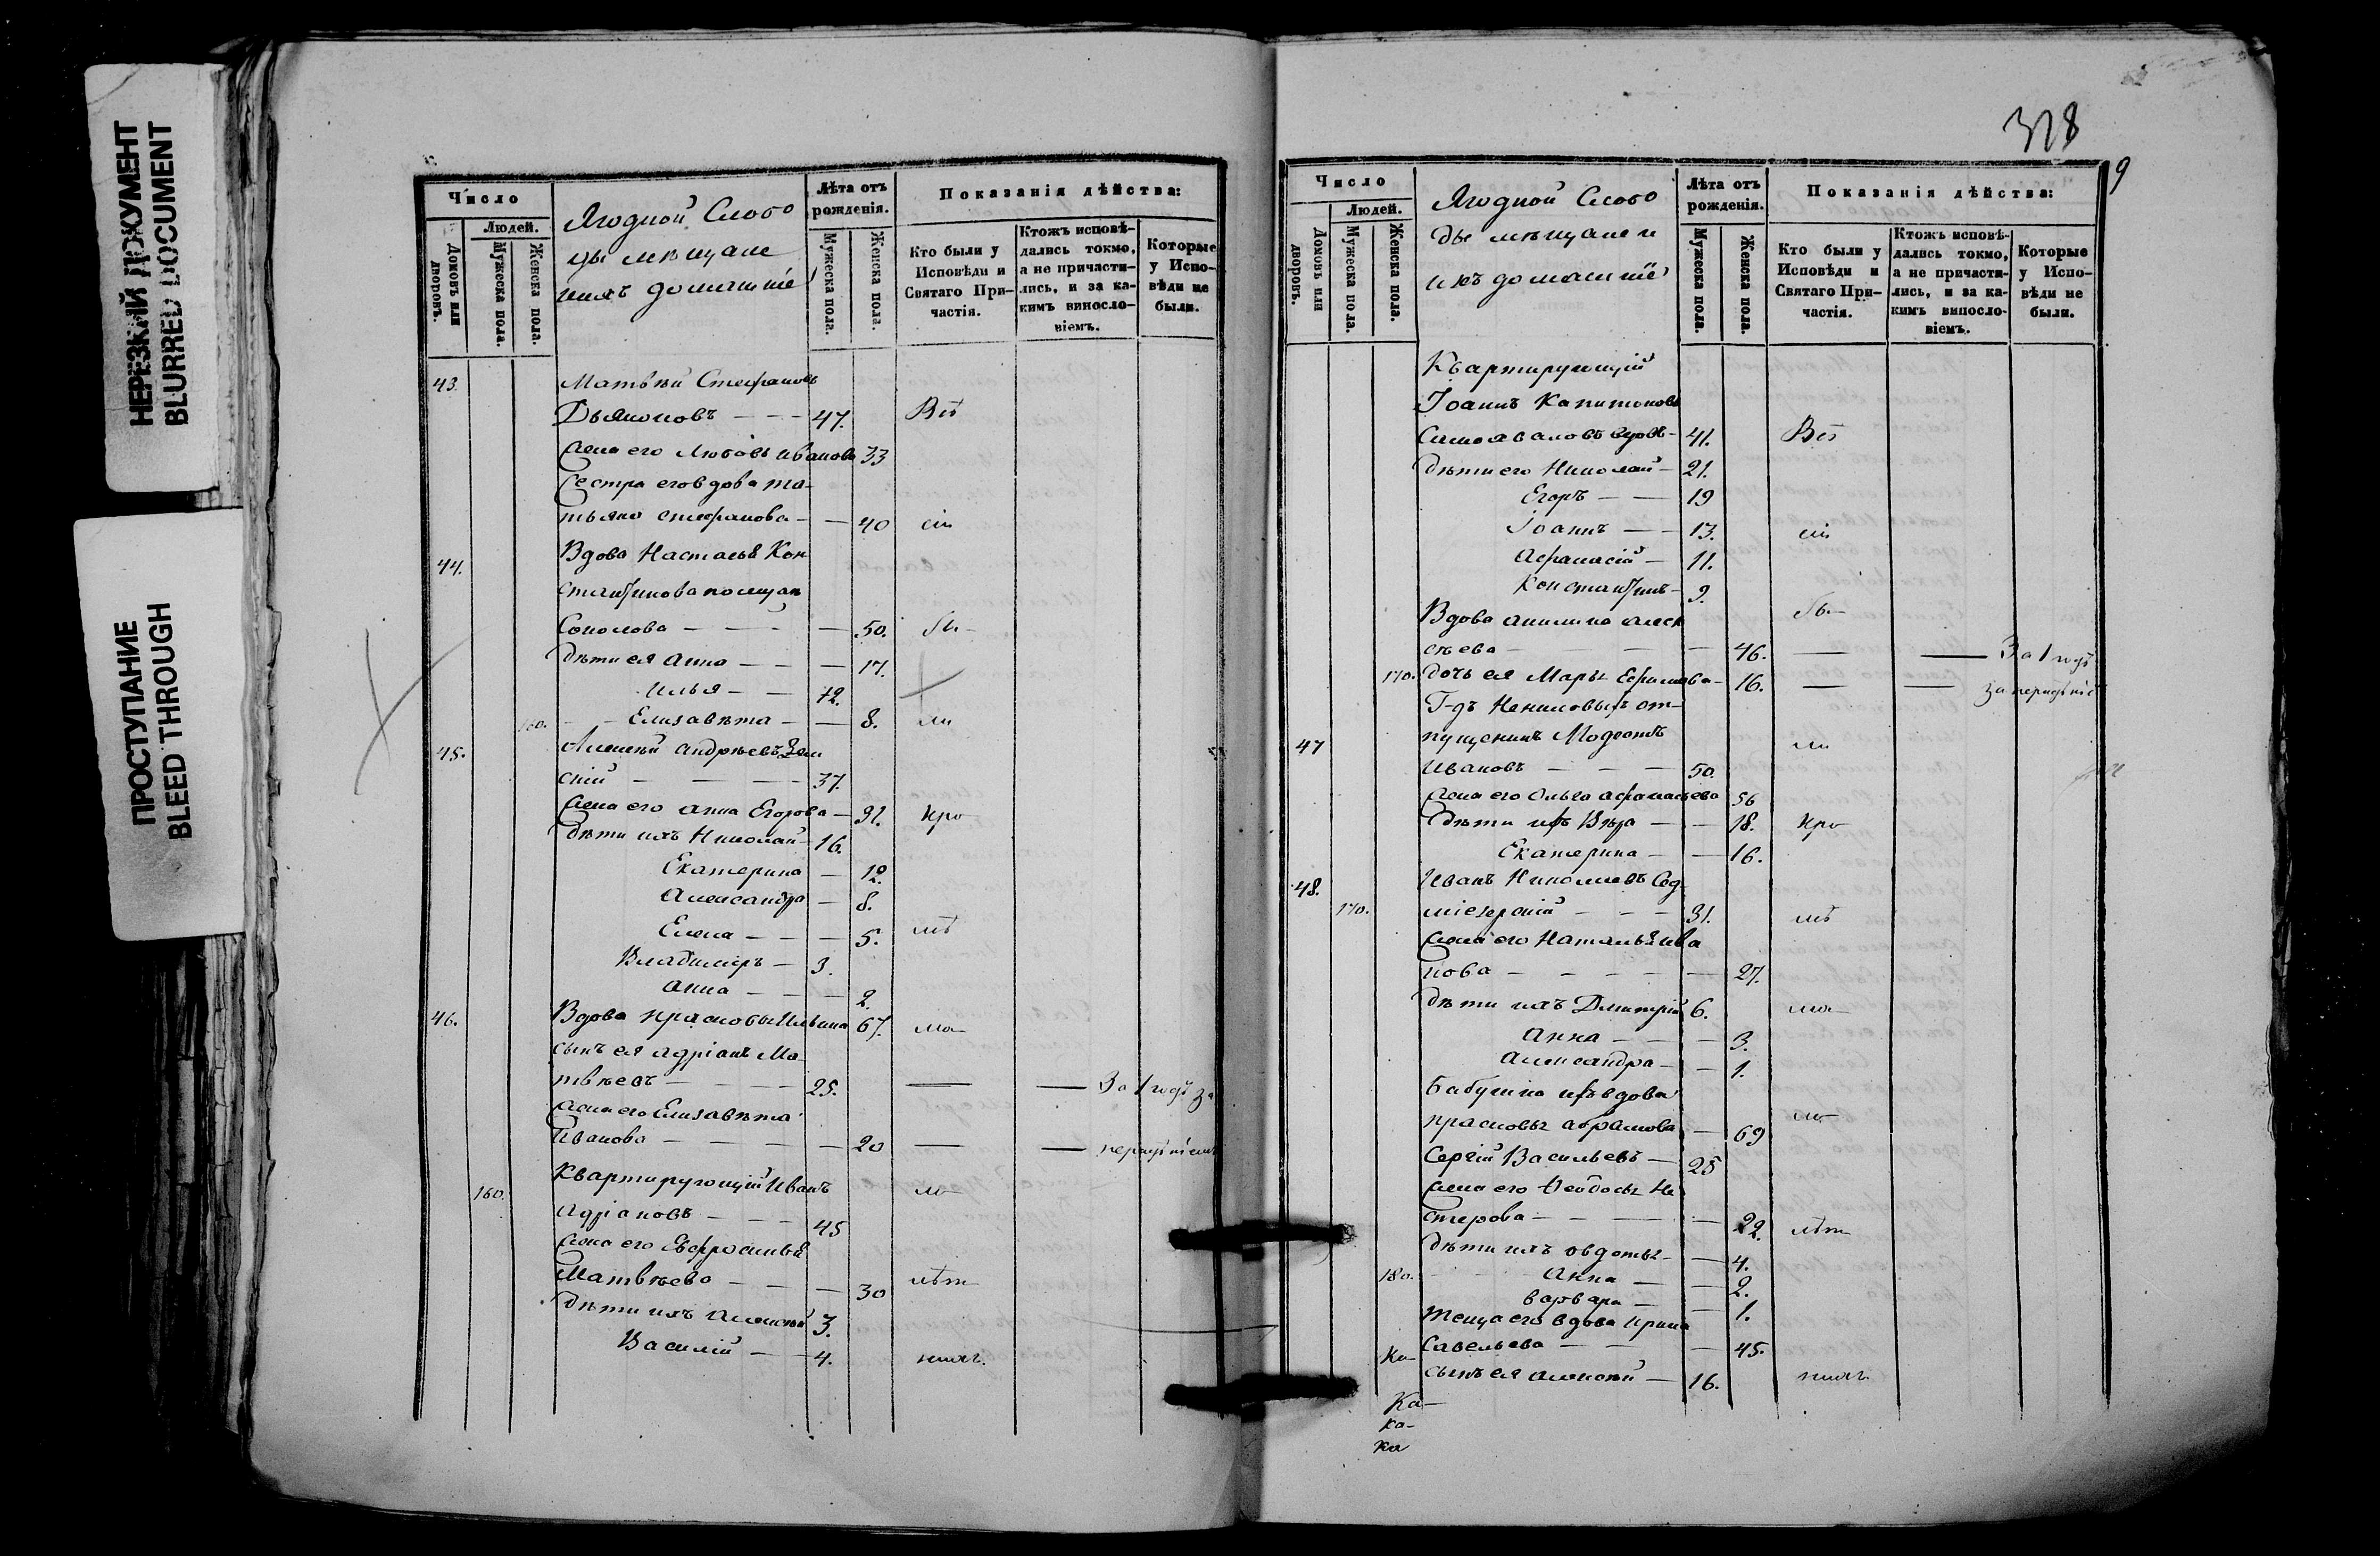 НЕРЕЗКИЙ ДОКУМЕНТ
BLURRED DOCUMENT
ПРОСТУПАНИЕ
BLEED THROUGH
Число
Людей.
Домовъ или дворовъ.
Мужеска пола.
Женска пола.
Ягодной Слобо
ды мѣщане
ихъ домашніе
Лѣта отъ рожденія.
Мужеска пола.
Женска пола.
Показанія дѣйства:
Кто были у Исповѣди и Святаго При-частія.
Ктожъ исповѣ-дались токмо, а не причасти-лись, и за ка-кимъ винословіемъ.
Которые у Испо-вѣди не были.
43. Матвѣй Стефановъ
Дьяконовъ - - - 47. Всѣ
Жена его Любовь Иванова 33
Сестра его вдова Та-
тьяна Стефанова - - 40 сіи
44. Вдова Настасья Кон
стантинова по мужѣ
Соколова - - - 50. бы-
Дѣти ея Анна - - - 17.
Илья - - 12.
160. - - Елизавѣта - - 8. ли
45. Алексѣй Андрѣевъ
скій - - - 37.
Жена его Анна Егорова - 31. про
Дѣти ихъ Николай - 16.
Екатерина - 12.
Александра - 8.
Елена - - - 5.
Владиміръ - 3.
Анна - - - 2.
46. Вдова Прасковья Ильина 67.
сынъ ея Адріанъ Ма
твѣевъ - - - 25. — — За 1 годъ за
Жена его Елизавѣта
Иванова - - - - 20 — — нерадѣніемъ
160. Квартирующій Иванъ
Адріановъ - - - 45
Жена его Евфросинья
Матвѣева - - - 30 лѣт-
Дѣти ихъ Алексѣй 3.
Василій - - 4. нихъ.
328
9
Число
Людей.
Домовъ или дворовъ.
Мужеска пола.
Женска пола.
Ягодной Слобо
ды мѣщане и
ихъ домашніе
Лѣта отъ рожденія.
Мужеска пола.
Женска пола.
Показанія дѣйства:
Кто были у Исповѣди и Святаго При-частія.
Ктожъ исповѣ-дались токмо, а не причасти-лись, и за ка-кимъ винословіемъ.
Которые у Испо-вѣди не были.
Квартирующій
Іоаннъ Капитоновъ
вдовъ - 41. Всѣ
Дѣти его Николай - 21.
Егоръ - - 19
Іоаннъ - - 13. сіи
Афанасій - 11.
Константинъ - 9.
Вдова Акилина Алек
сѣева - - - 46. — — За 1 годъ
170. дочь ея Марья Ефимова - 16. — — за нерадѣніе
Г-дъ
47 пущенникъ Модестъ ли
Ивановъ - - - 50.
Жена его Ольга Афанасьева 56
Дѣти ихъ Вѣра - - 18. про
Екатерина - - 16.
48. Иванъ Николаевъ Сед
170. міезерскій - - - 31.
Жена его Наталья Ива
нова - - - - - 27.
Дѣти ихъ Дмитрій 6.
Анна - - - 3.
Александра - - 1.
Бабушка ихъ вдова
Прасковья Абрамова - 69
Сергій Васильевъ - 25
Жена его Ѳеодосья Не
стерова - - - - 22. лѣт-
Дѣти ихъ Овдотья - - 4.
180. - - - Анна - - 2.
Варвара - - 1.
Теща его вдова Ирина
Ка- Савельева - - - 45.
сынъ ея Алексѣй - 16. нихъ
Ка-
ка-
ка